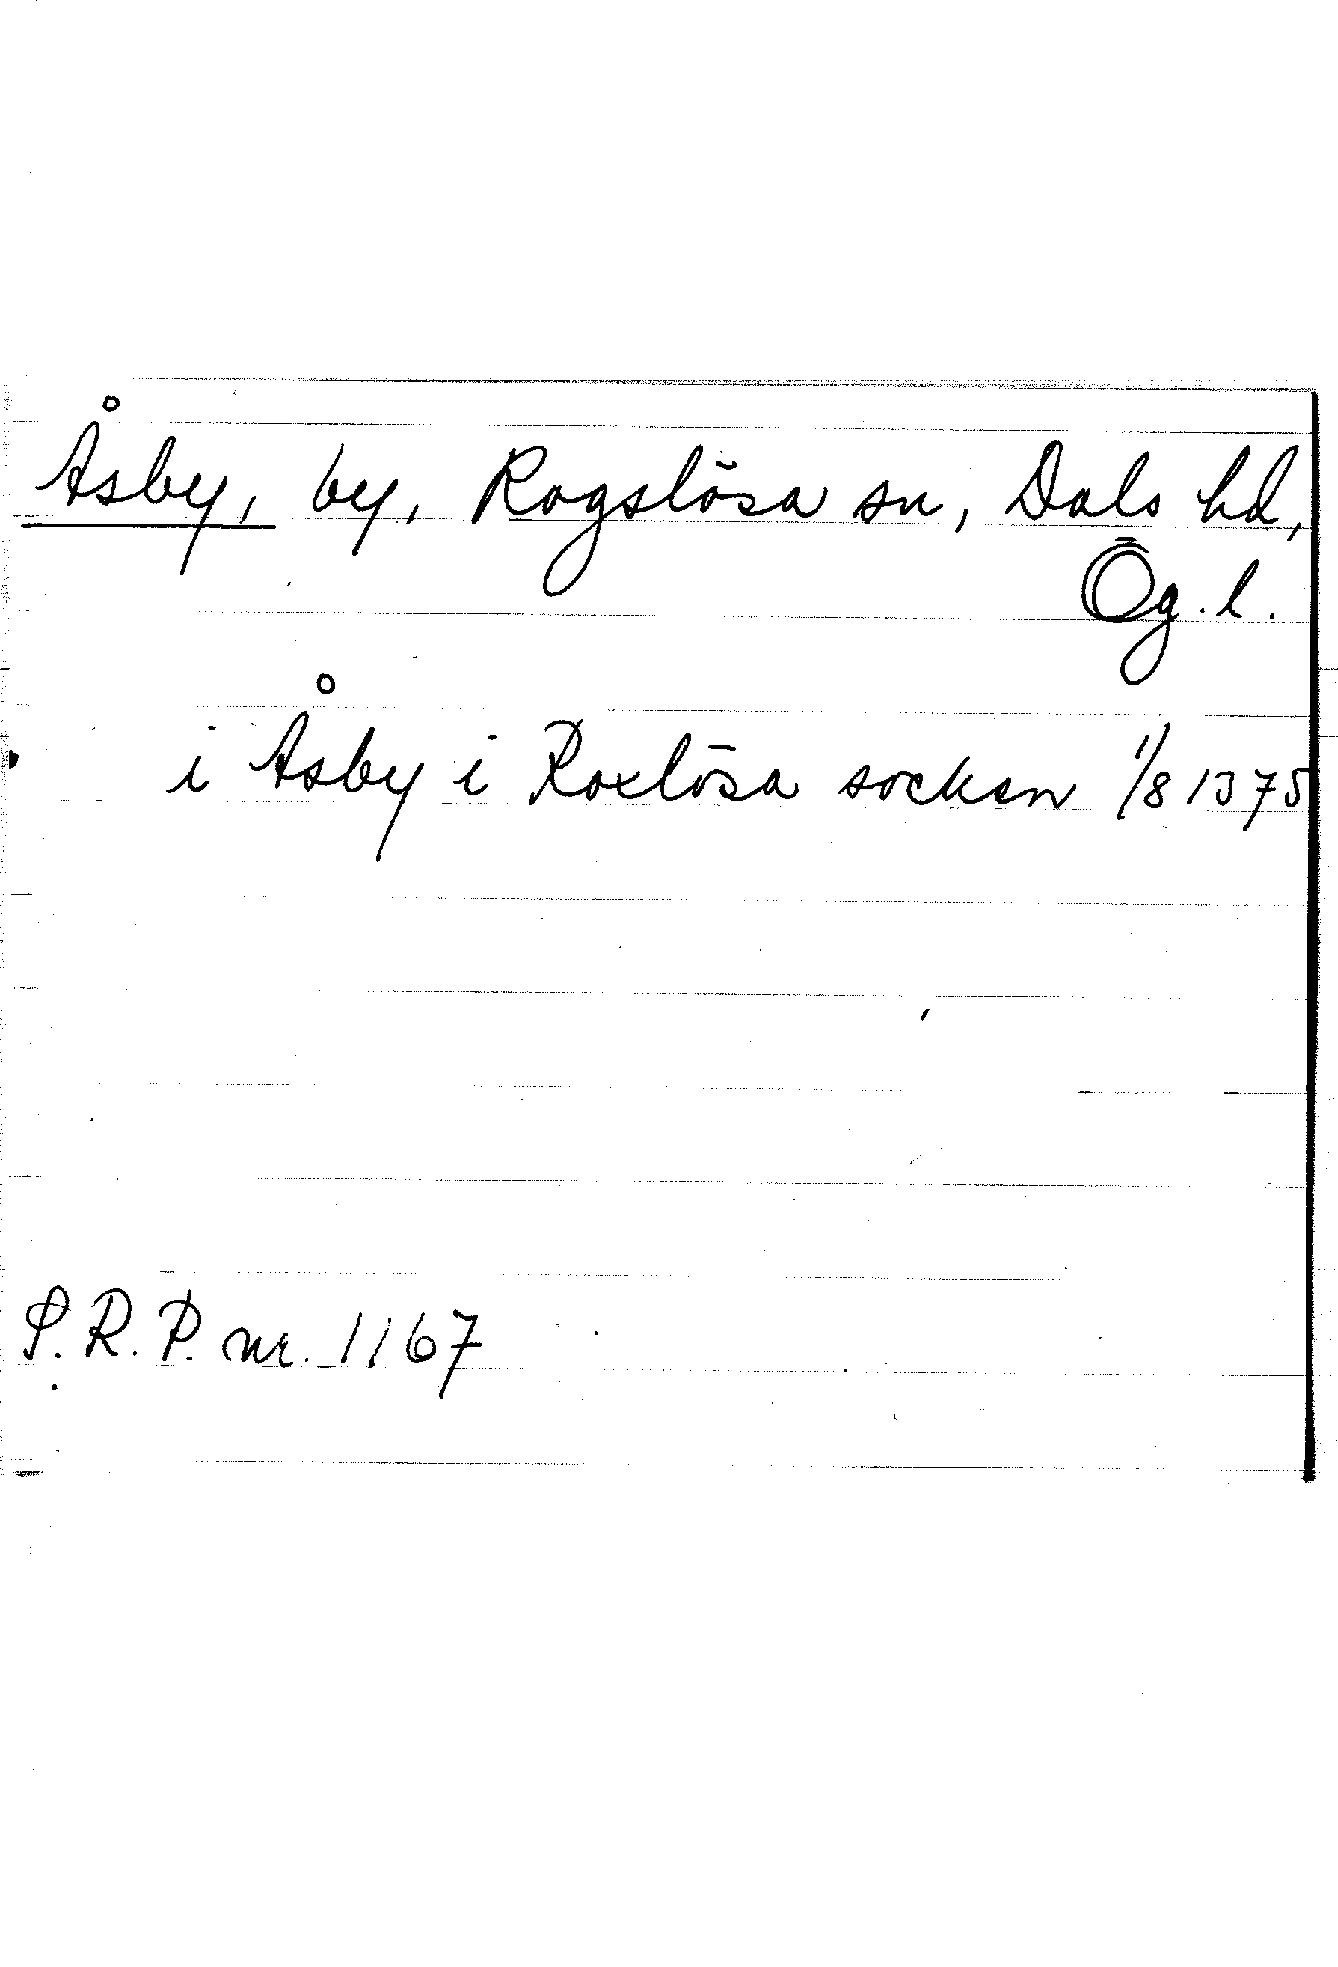 Åsby, by, Rogslösa sn, Dals hd,
Ög. l.
i Åsby i Roxlösa socken 1/8 1375
S.R.P. nr. 1167